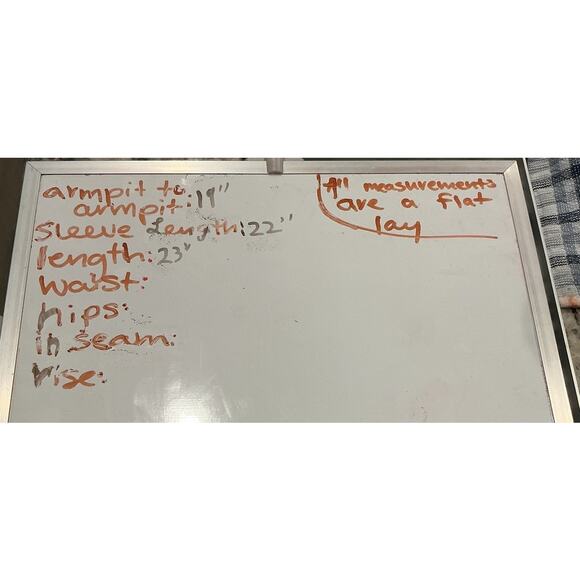 armpit to
armpit: 19"
sleeve Length: 22"
length: 23"
waist:
hips:
in seam:
rise:
All measurements
are a flat
lay